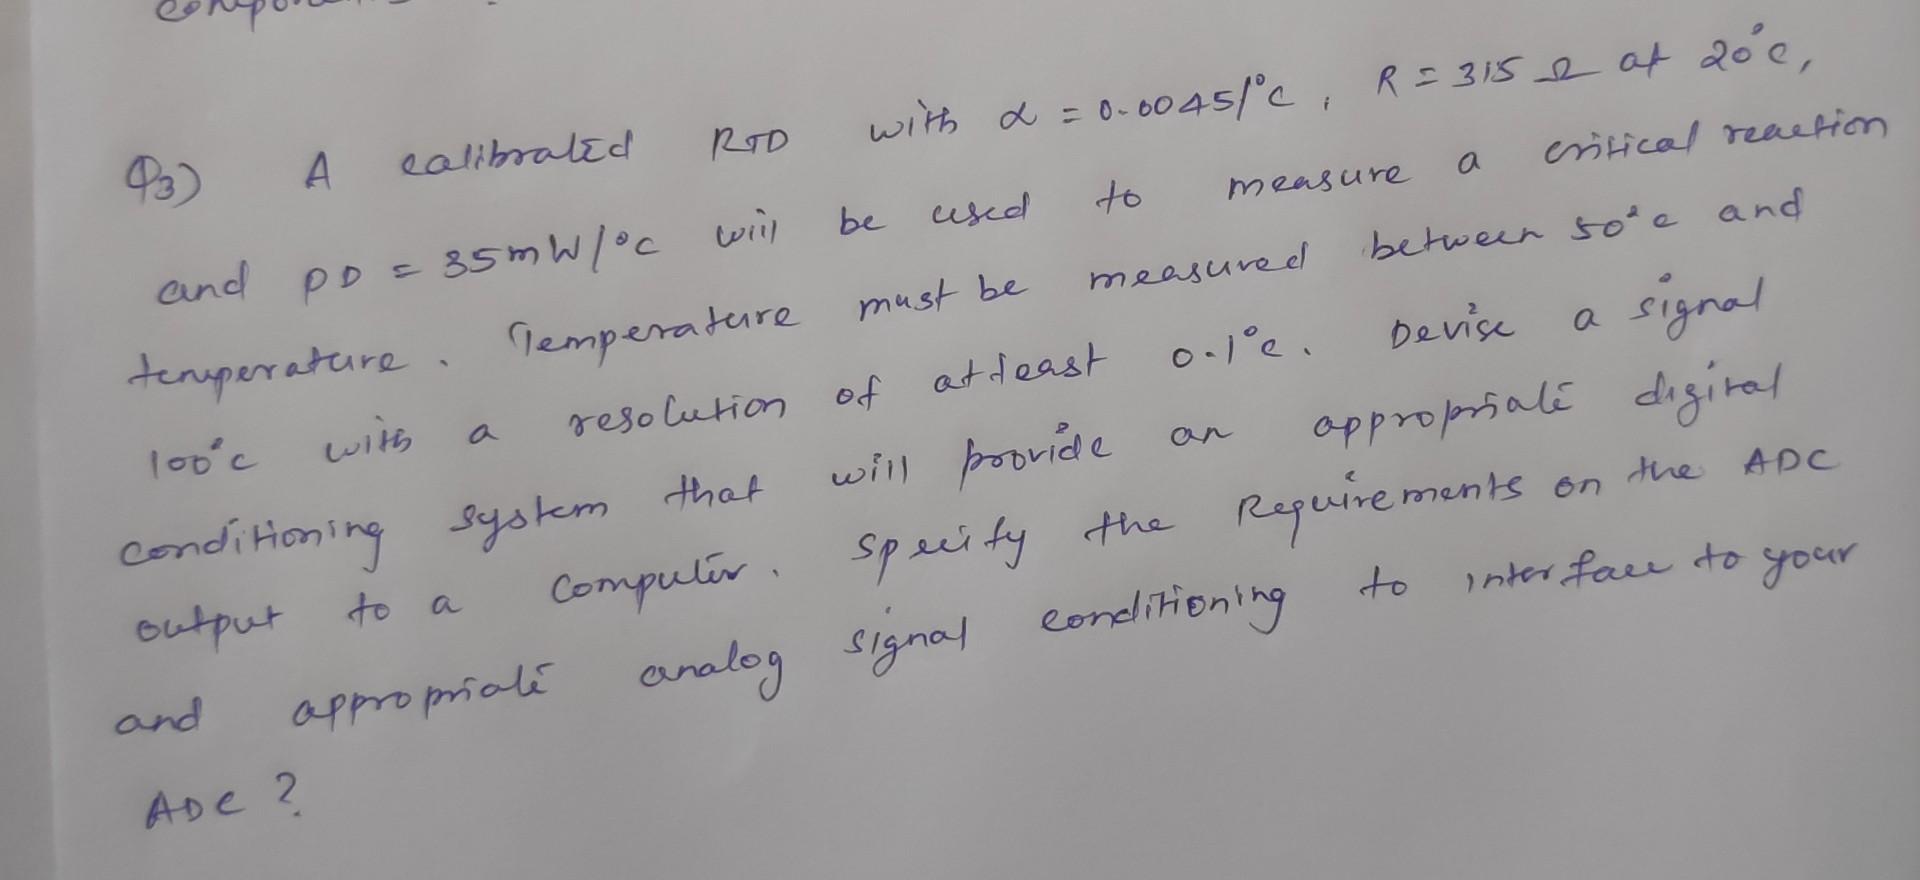 Q3) A calibrated RTD with α = 0.0045/°C, R = 315 Ω at 20°C,
and PD = 35mW/°C will be used to measure a critical reaction
temperature. Temperature must be measured between 50°C and
100°C with a resolution of atleast 0.1°C. Devise a signal
conditioning system that will provide an appropriate digital
output to a Computer. Specify the Requirements on the ADC
and appropriate analog signal conditioning to interface to your
ADC ?